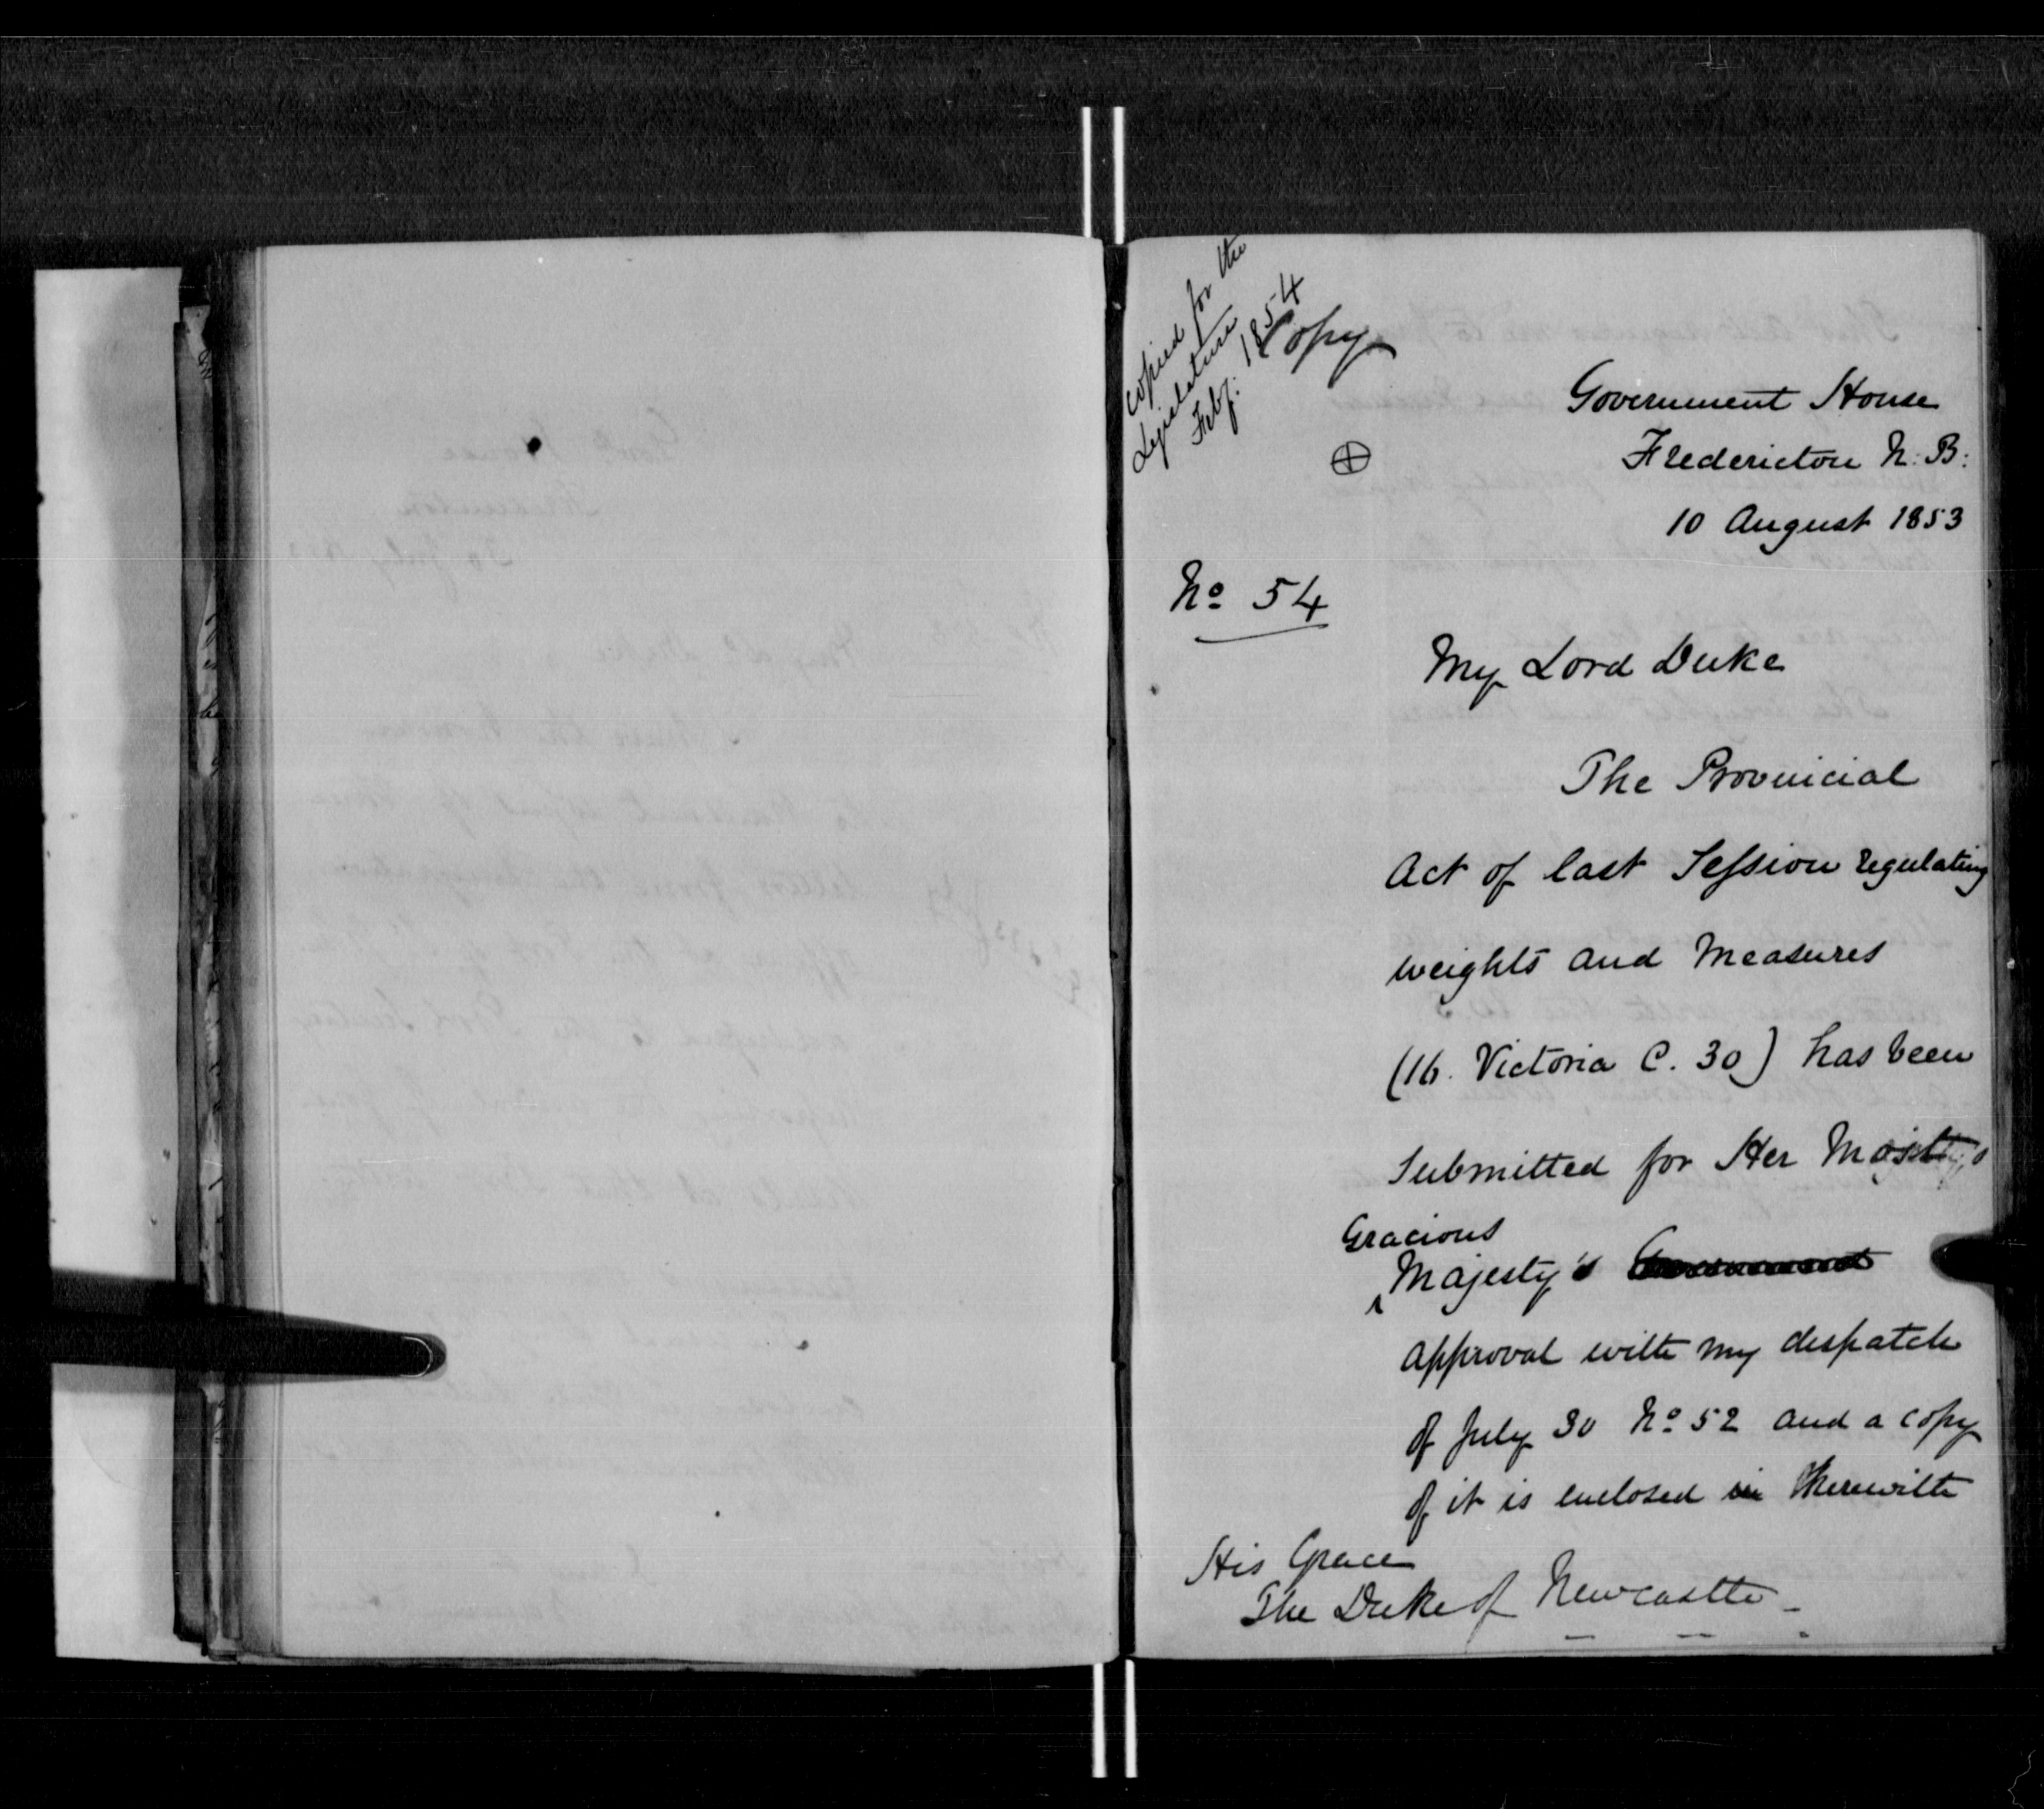 copied for the
Legislature
Feby. 1854
Copy
Government House
Fredericton N. B.
10 August 1853
No 54
My Lord Duke
The Provincial
Act of last Session regulating
weights and measures
(16. Victoria C. 30) has been
submitted for Her
Gracious
Majesty's
approval with my despatch
of July 30 No 52 and a copy
of it is enclosed therewith
His Grace
The Duke of Newcastle